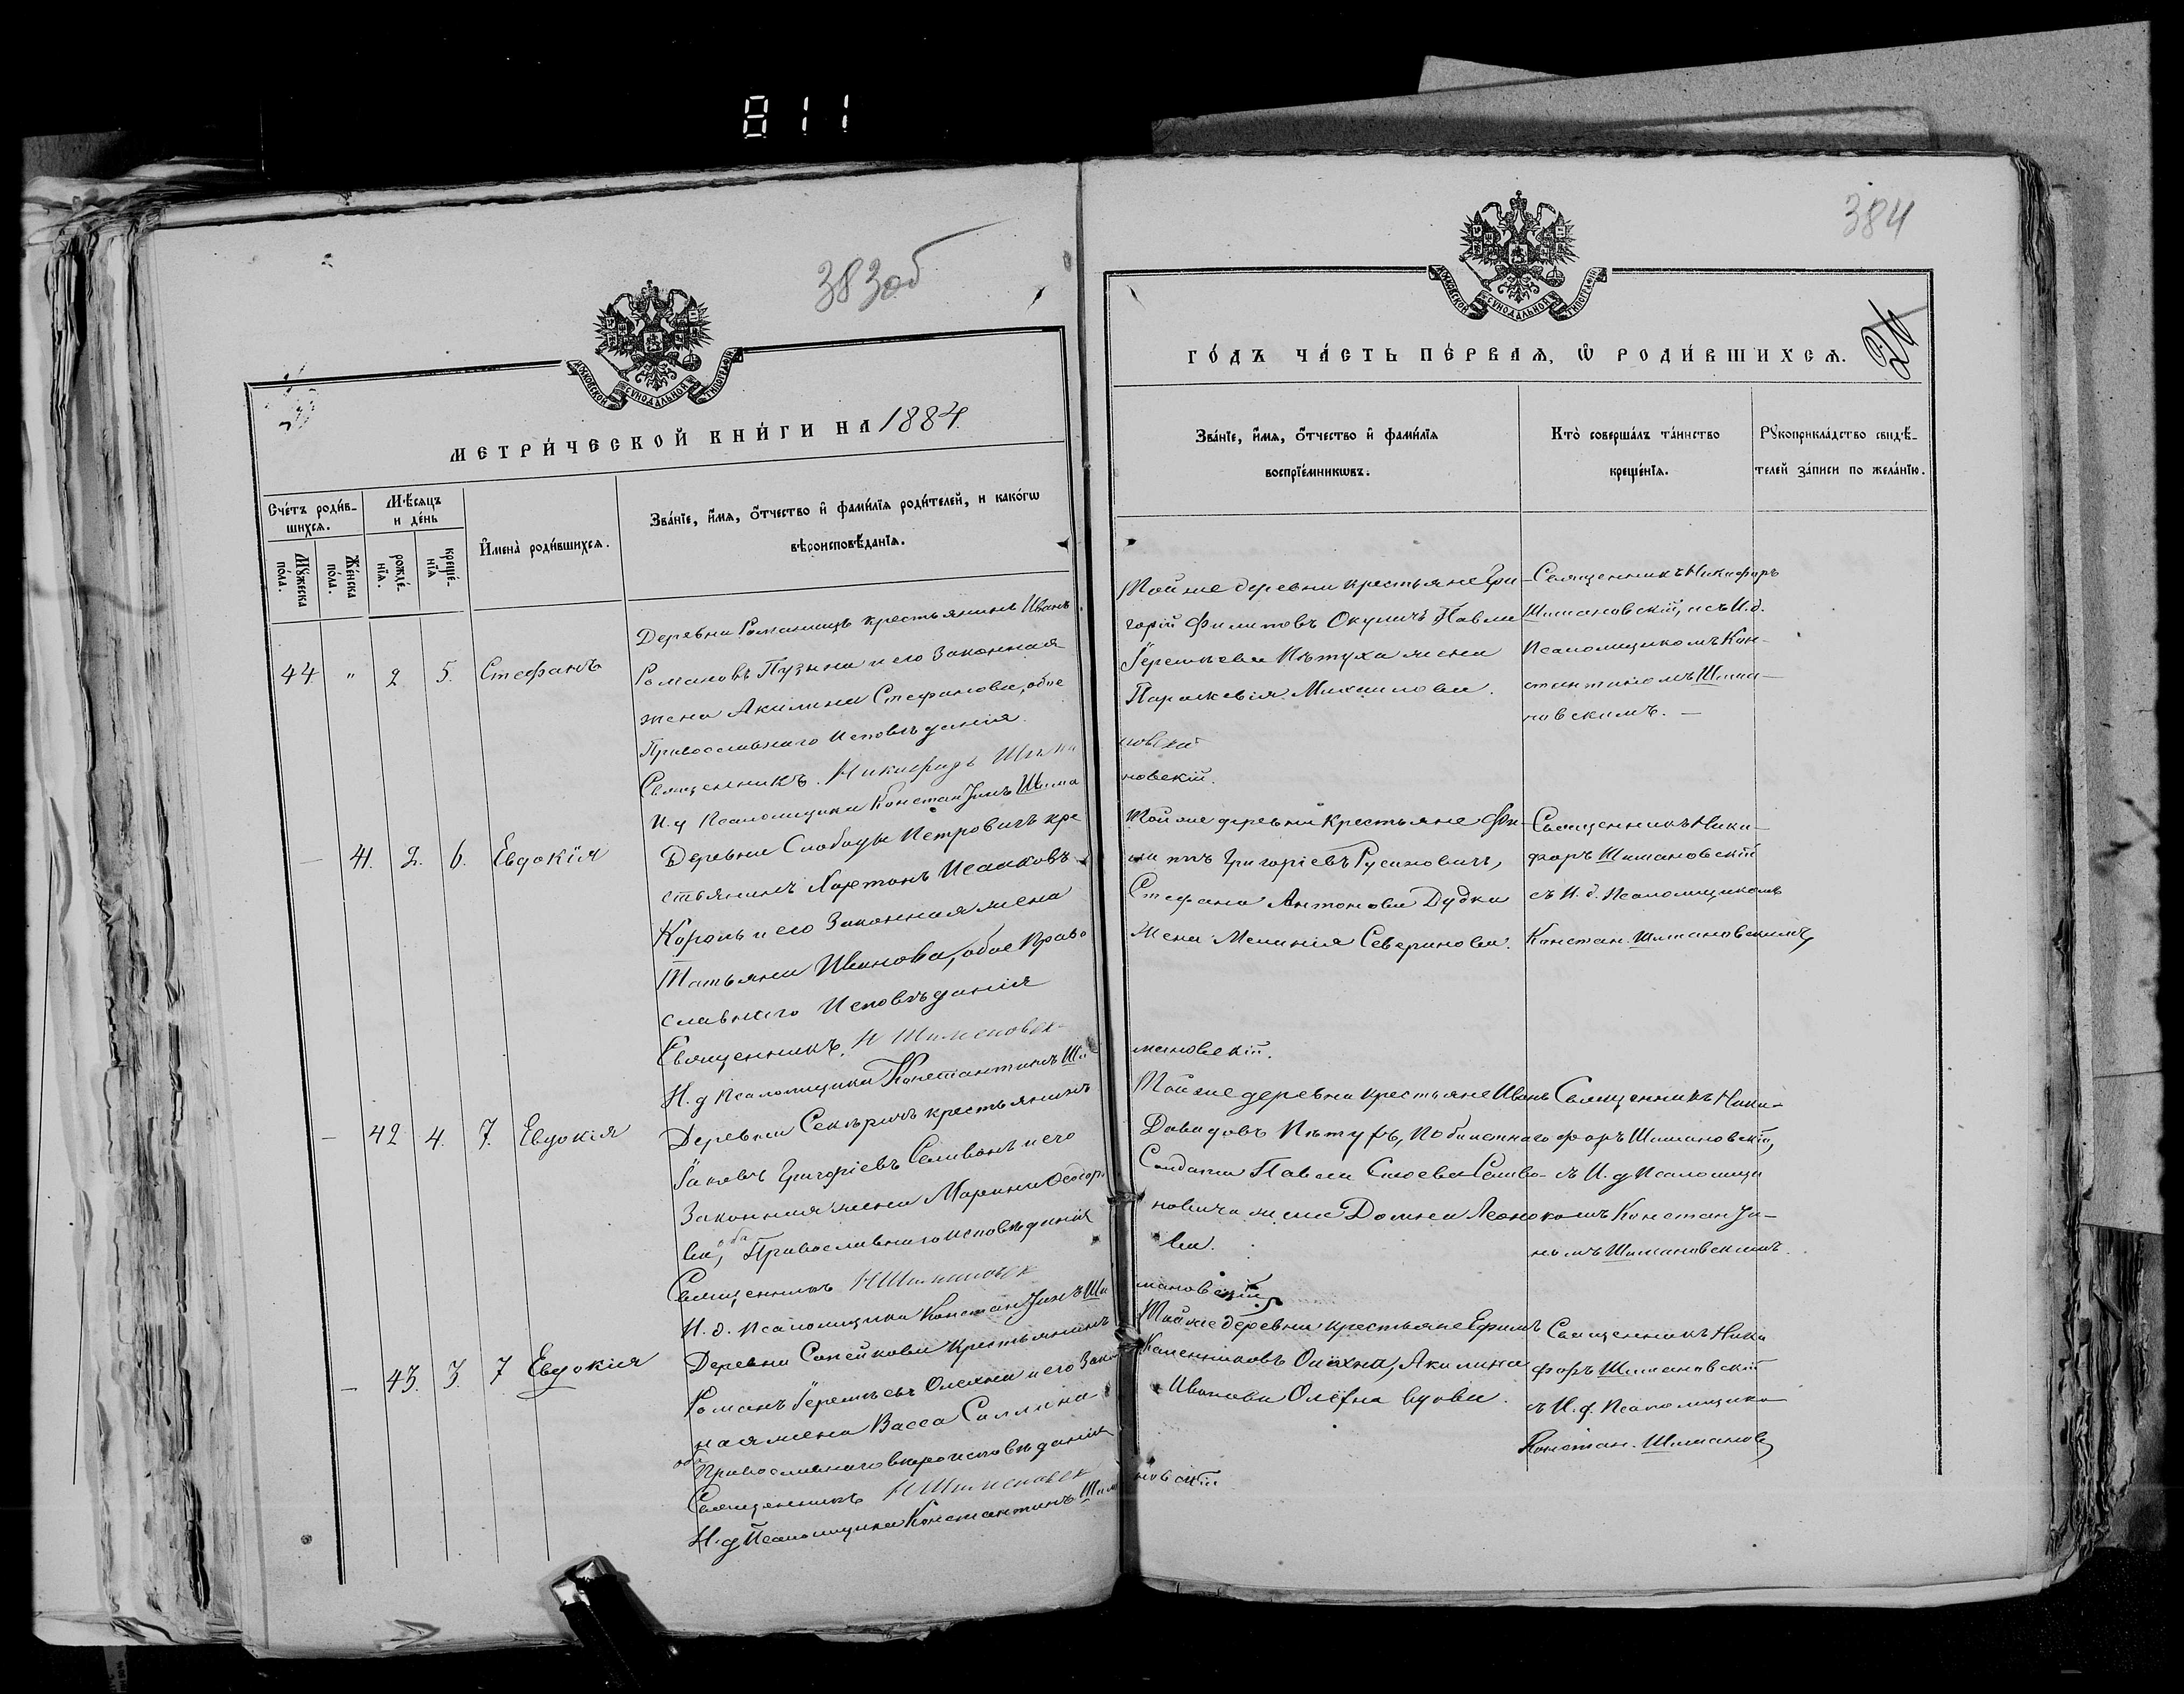 811
383об
МОСКОВСКОЙ СУНОДАЛЬНОЙ ТИПОГРАФІИ
МЕТРИ́ЧЕСКОЙ КНИ́ГИ НА 1884.
Сче́тъ роди́в-
шихся.
Мѣ́сяцъ
и де́нь
И҆мена̀ роди́вшихся.
Зва́нїе, и҆́мя, ѻ҆́тчество и҆ фами́лїя роди́телей, и како́гѡ
вѣроисповѣ́данїя.
Мꙋ́жеска
по́ла.
Же́нска
по́ла.
рожде́-
нїя.
креще́-
нїя
44. " 2 5. Стефанъ
Деревни Романищъ крестьянинъ Иванъ
Романовъ Пузына и его Законная
жена Акилина Стефанова, обое
Православнаго Исповѣданія
Священникъ. Никифоръ Шима
И. д Псаломщика Константинъ Шима
— 41. 2. 6. Евдокія
Деревни Слободы Петровичъ кре
стьянинъ Харитонъ Исааковъ
Король и его Законная жена
Татьяна Иванова, обое Право
славнаго Исповѣданія
Священникъ. Н Шимановск
И. д Псаломщика Константинъ Ши
— 42 4. 7. Евдокія
Деревни Секѣричъ крестьянинъ
Яковъ Григоріевъ Селивонъ и его
Законная жена Марина Ѳеодоро
ва, оба Православнаго исповѣданія
Священникъ Н Шимановск
И. д. Псаломщика Константинъ Ши
— 43. 3. 7 Евдокія
Деревни Сопейкова Крестьянинъ
Романъ Геремѣевъ Олехна и его Закон
ная жена Васса
оба Православнаго вѣроисповѣданія
Священникъ Н Шимановск
И. д Псаломщика Константинъ Шима
384
МОСКОВСКОЙ СУНОДАЛЬНОЙ ТИПОГРАФІИ
ГО́ДЪ ЧА́СТЬ ПЕ́РВАЯ, Ѡ҆ РОДИ́ВШИХСЯ.
Зва́нїе, и҆́мя, ѻ҆́тчество и҆ фами́лїя
воспрїе́мникѡвъ.
Кто̀ соверша́лъ та́инство
креще́нїя.
Рꙋкоприкла́дство свидѣ́-
телей за́писи по жела́нїю.
Той же деревни крестьяне Гри-
горій Филиповъ Окуличъ Павла
Геремѣева Пѣтуха жена
Параскевія Михаилова.
Священникъ Никифоръ
Шимановскій, и съ И. д.
Псаломщикомъ Кон-
стантиномъ Шима-
новскимъ. —
новскій
новскій.
Той же деревни Крестьяне Фи-
липпъ Григоріевъ Русиновичъ,
Стефана Антонова Дудки
жена Меланія Северинова.
Священникъ Ники-
форъ Шимановскій
съ И. д. Псаломщикомъ
Констан. Шимановскимъ
мановскій.
Той же деревни крестьяне Иванъ
Давидовъ Пѣтухъ, По билетнаго
Солдата Павла Сысоева Селиво-
новича жена Домна Леоно
ва.
Священникъ Ники-
форъ Шимановскій,
съ И. д Псаломщи
комъ Константи-
номъ Шимановскимъ.
мановскій
Той же деревни крестьяне Ефимъ
Олехна, Акилина
Иванова Олехна вдова.
Священникъ Ники
форъ Шимановскій
съ И. д. Псаломщико
Констан. Шиманов
новскій